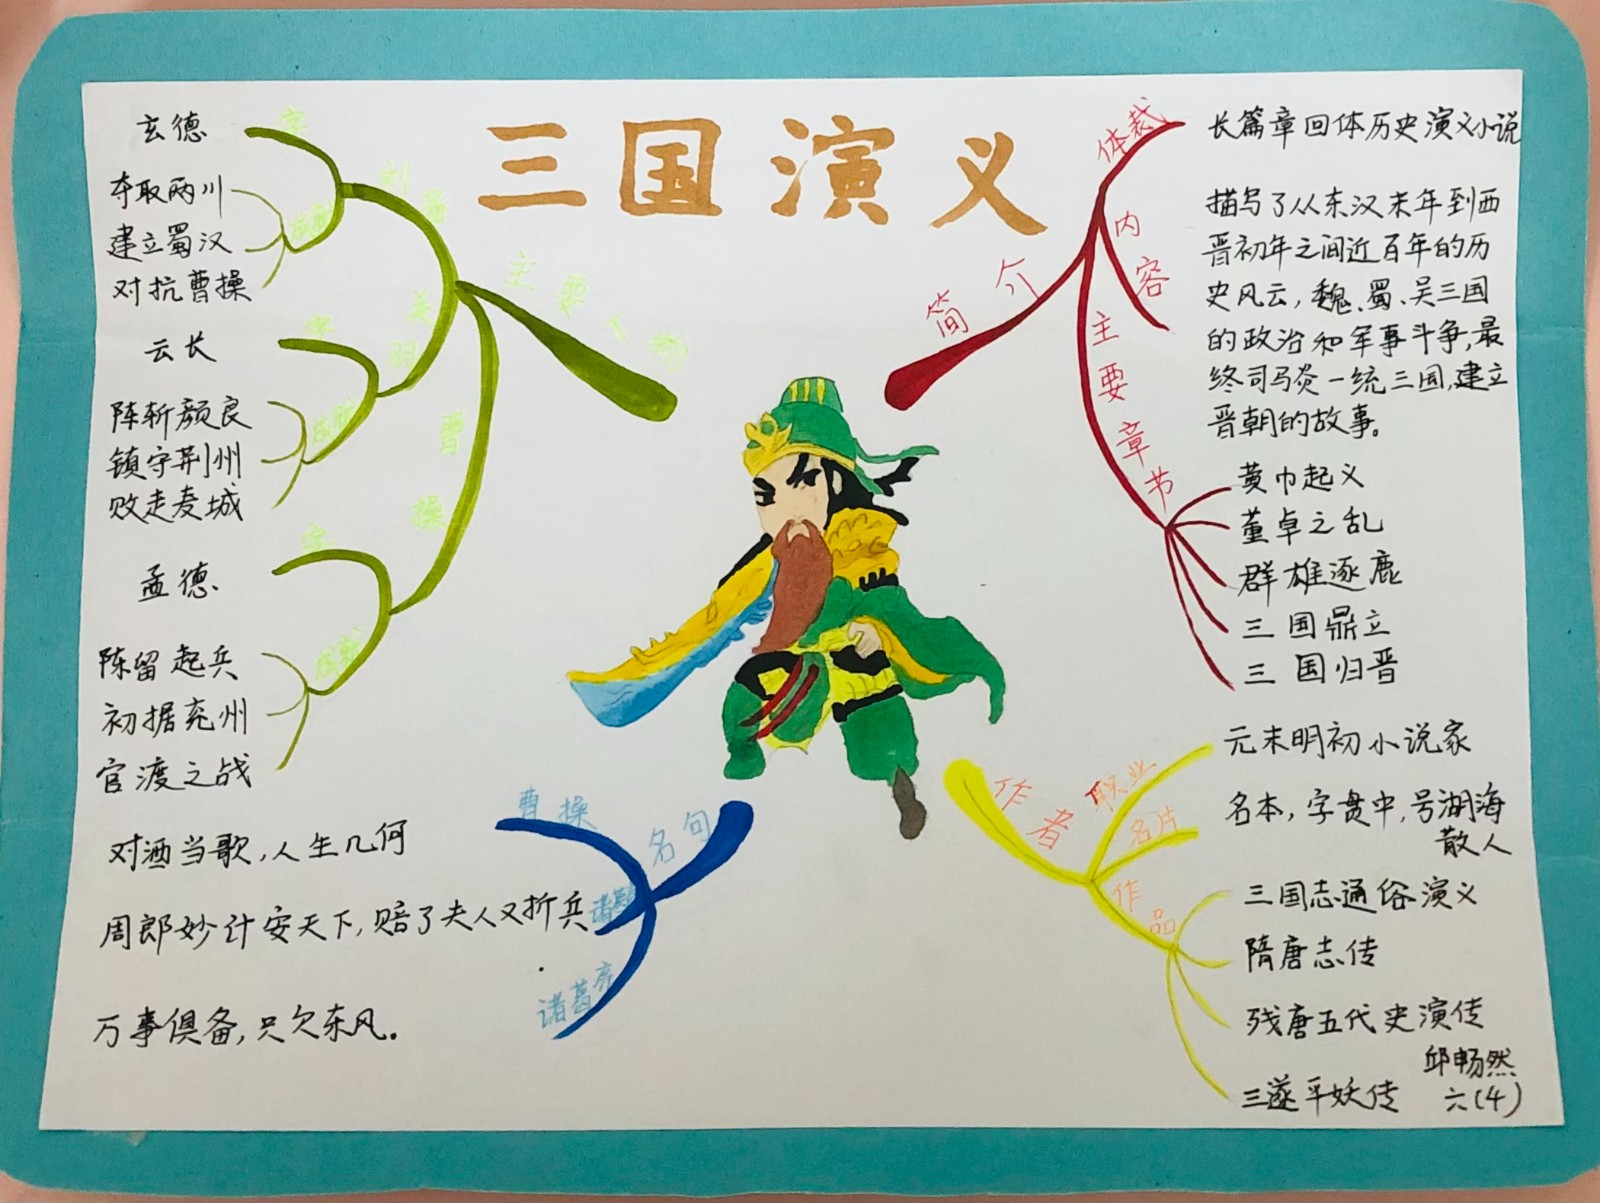 三国演义
主要人物
刘备
字
玄德
成就
夺取两川
建立蜀汉
对抗曹操
关羽
字
云长
成就
阵斩颜良
镇守荆州
败走麦城
曹操
字
孟德
成就
陈留起兵
初据兖州
官渡之战
名句
曹操
对酒当歌,人生几何
诸葛
周郎妙计安天下,赔了夫人又折兵
诸葛亮
万事俱备,只欠东风。
简介
体裁
长篇章回体历史演义小说
内容
描写了从东汉末年到西
晋初年之间近百年的历
史风云,魏、蜀、吴三国
的政治和军事斗争,最
终司马炎一统三国,建立
晋朝的故事。
主要章节
黄巾起义
董卓之乱
群雄逐鹿
三国鼎立
三国归晋
作者
职业
元末明初小说家
名片
名本,字贯中,号湖海
散人
作品
三国志通俗演义
隋唐志传
残唐五代史演传
三遂平妖传
邱畅然
六(4)